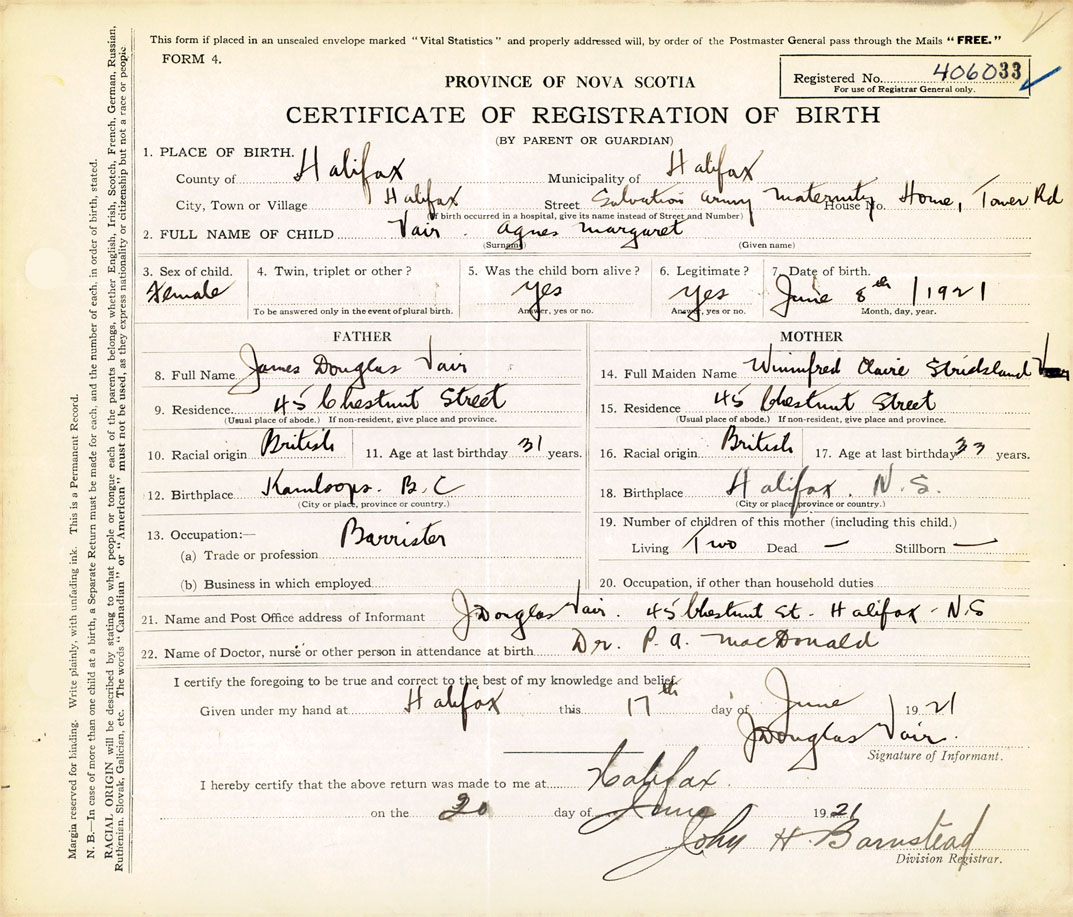 This form if placed in an unsealed envelope marked "Vital Statistics" and properly addressed will, by order of the Postmaster General pass through the Mails "FREE."
FORM 4.
Registered No. 406033
For use of Registrar General only.
PROVINCE OF NOVA SCOTIA
CERTIFICATE OF REGISTRATION OF BIRTH
(BY PARENT OR GUARDIAN)
1. PLACE OF BIRTH.
County of Halifax Municipality of Halifax
City, Town or Village Halifax Street Salvation Army Maternity House No. Home, Tower Rd
(If birth occurred in a hospital, give its name instead of Street and Number)
2. FULL NAME OF CHILD Vair. Agnes Margaret
(Surname) (Given name)
3. Sex of child. 4. Twin, triplet or other? 5. Was the child born alive? 6. Legitimate? 7. Date of birth.
Female Yes Yes June 8th 1921
To be answered only in the event of plural birth. Answer, yes or no. Answer, yes or no. Month, day, year.
FATHER
8. Full Name James Douglas Vair
9. Residence 45 Chestnut Street
(Usual place of abode.) If non-resident, give place and province.
10. Racial origin British 11. Age at last birthday 31 years.
12. Birthplace Kamloops. B.C
(City or place, province or country.)
13. Occupation:— Barrister
(a) Trade or profession
(b) Business in which employed
MOTHER
14. Full Maiden Name Winnifred Claire Strickland
15. Residence 45 Chestnut Street
(Usual place of abode.) If non-resident, give place and province.
16. Racial origin British 17. Age at last birthday 33 years.
18. Birthplace Halifax. N.S.
(City or place, province or country.)
19. Number of children of this mother (including this child.)
Living Two Dead — Stillborn —
20. Occupation, if other than household duties
21. Name and Post Office address of Informant J Douglas Vair. 45 Chestnut St. Halifax - N.S
22. Name of Doctor, nurse or other person in attendance at birth Dr. P. A. MacDonald
I certify the foregoing to be true and correct to the best of my knowledge and belief.
Given under my hand at Halifax this 17th day of June 1921
J Douglas Vair.
Signature of Informant.
I hereby certify that the above return was made to me at Halifax
on the 20 day of June 1921
John H. Barnstead
Division Registrar.
Margin reserved for binding. Write plainly, with unfading ink. This is a Permanent Record.
N. B.—In case of more than one child at a birth, a Separate Return must be made for each, and the number of each, in order of birth, stated.
RACIAL ORIGIN will be described by stating to what people or tongue each of the parents belongs, whether English, Irish, Scotch, French, German, Russian,
Ruthenian, Slovak, Galician, etc. The words "Canadian" or "American" must not be used, as they express nationality or citizenship but not a race or people